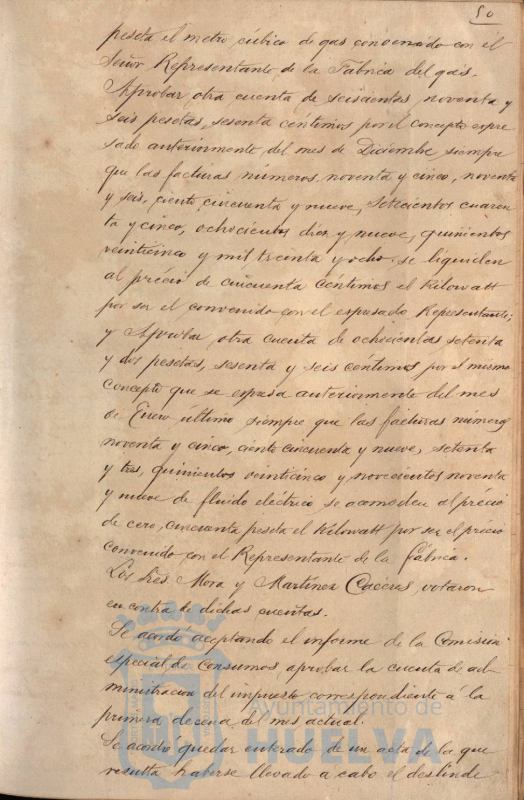 50
peseta el metro cúbico de gas convenido con el
Señor Representante de la Fabrica del gas.
Aprobar otra cuenta de seiscientas noventa y
seis pesetas, sesenta centimos por el concepto espre
sado anteriormente del mes de Diciembre siempre
que las facturas números noventa y cinco, noventa
y seis, ciento cincuenta y nueve, setecientos cuaren
ta y cinco, ochocientos diez y nueve, quinientos
veinticinco y mil treinta y ocho se liquiden
al précio de cincuenta céntimos el Kilowatt
por ser el convenido con el espresado Representante;
y Aprobar, otra cuenta de ochocientas setenta
y dos pesetas, sesenta y seis céntimos, por el mismo
concepto que se espresa anteriormente del mes
de Enero último siempre que las facturas números
noventa y cinco, ciento cincuenta y nueve, setenta
y tres, quinientos veinticinco y novecientos noventa
y nueve de fluido eléctrico se acomoden al précio
de cero, cincuenta peseta el Kilowatt por ser el précio
convenido con el Representante de la fábrica.
Los Sres Mora y Martinez Caceres, votaron
en contra de dichas cuentas.
Se acordó aceptando el informe de la Comisión
especial de Consumos, aprobar la cuenta de ad-
ministracion del impuesto correspondiente á la
primera decena del mes actual.
Se acordó quedar enterado de un acta de la que
resulta haberse llevado a cabo el deslinde
Ayuntamiento de
HUELVA